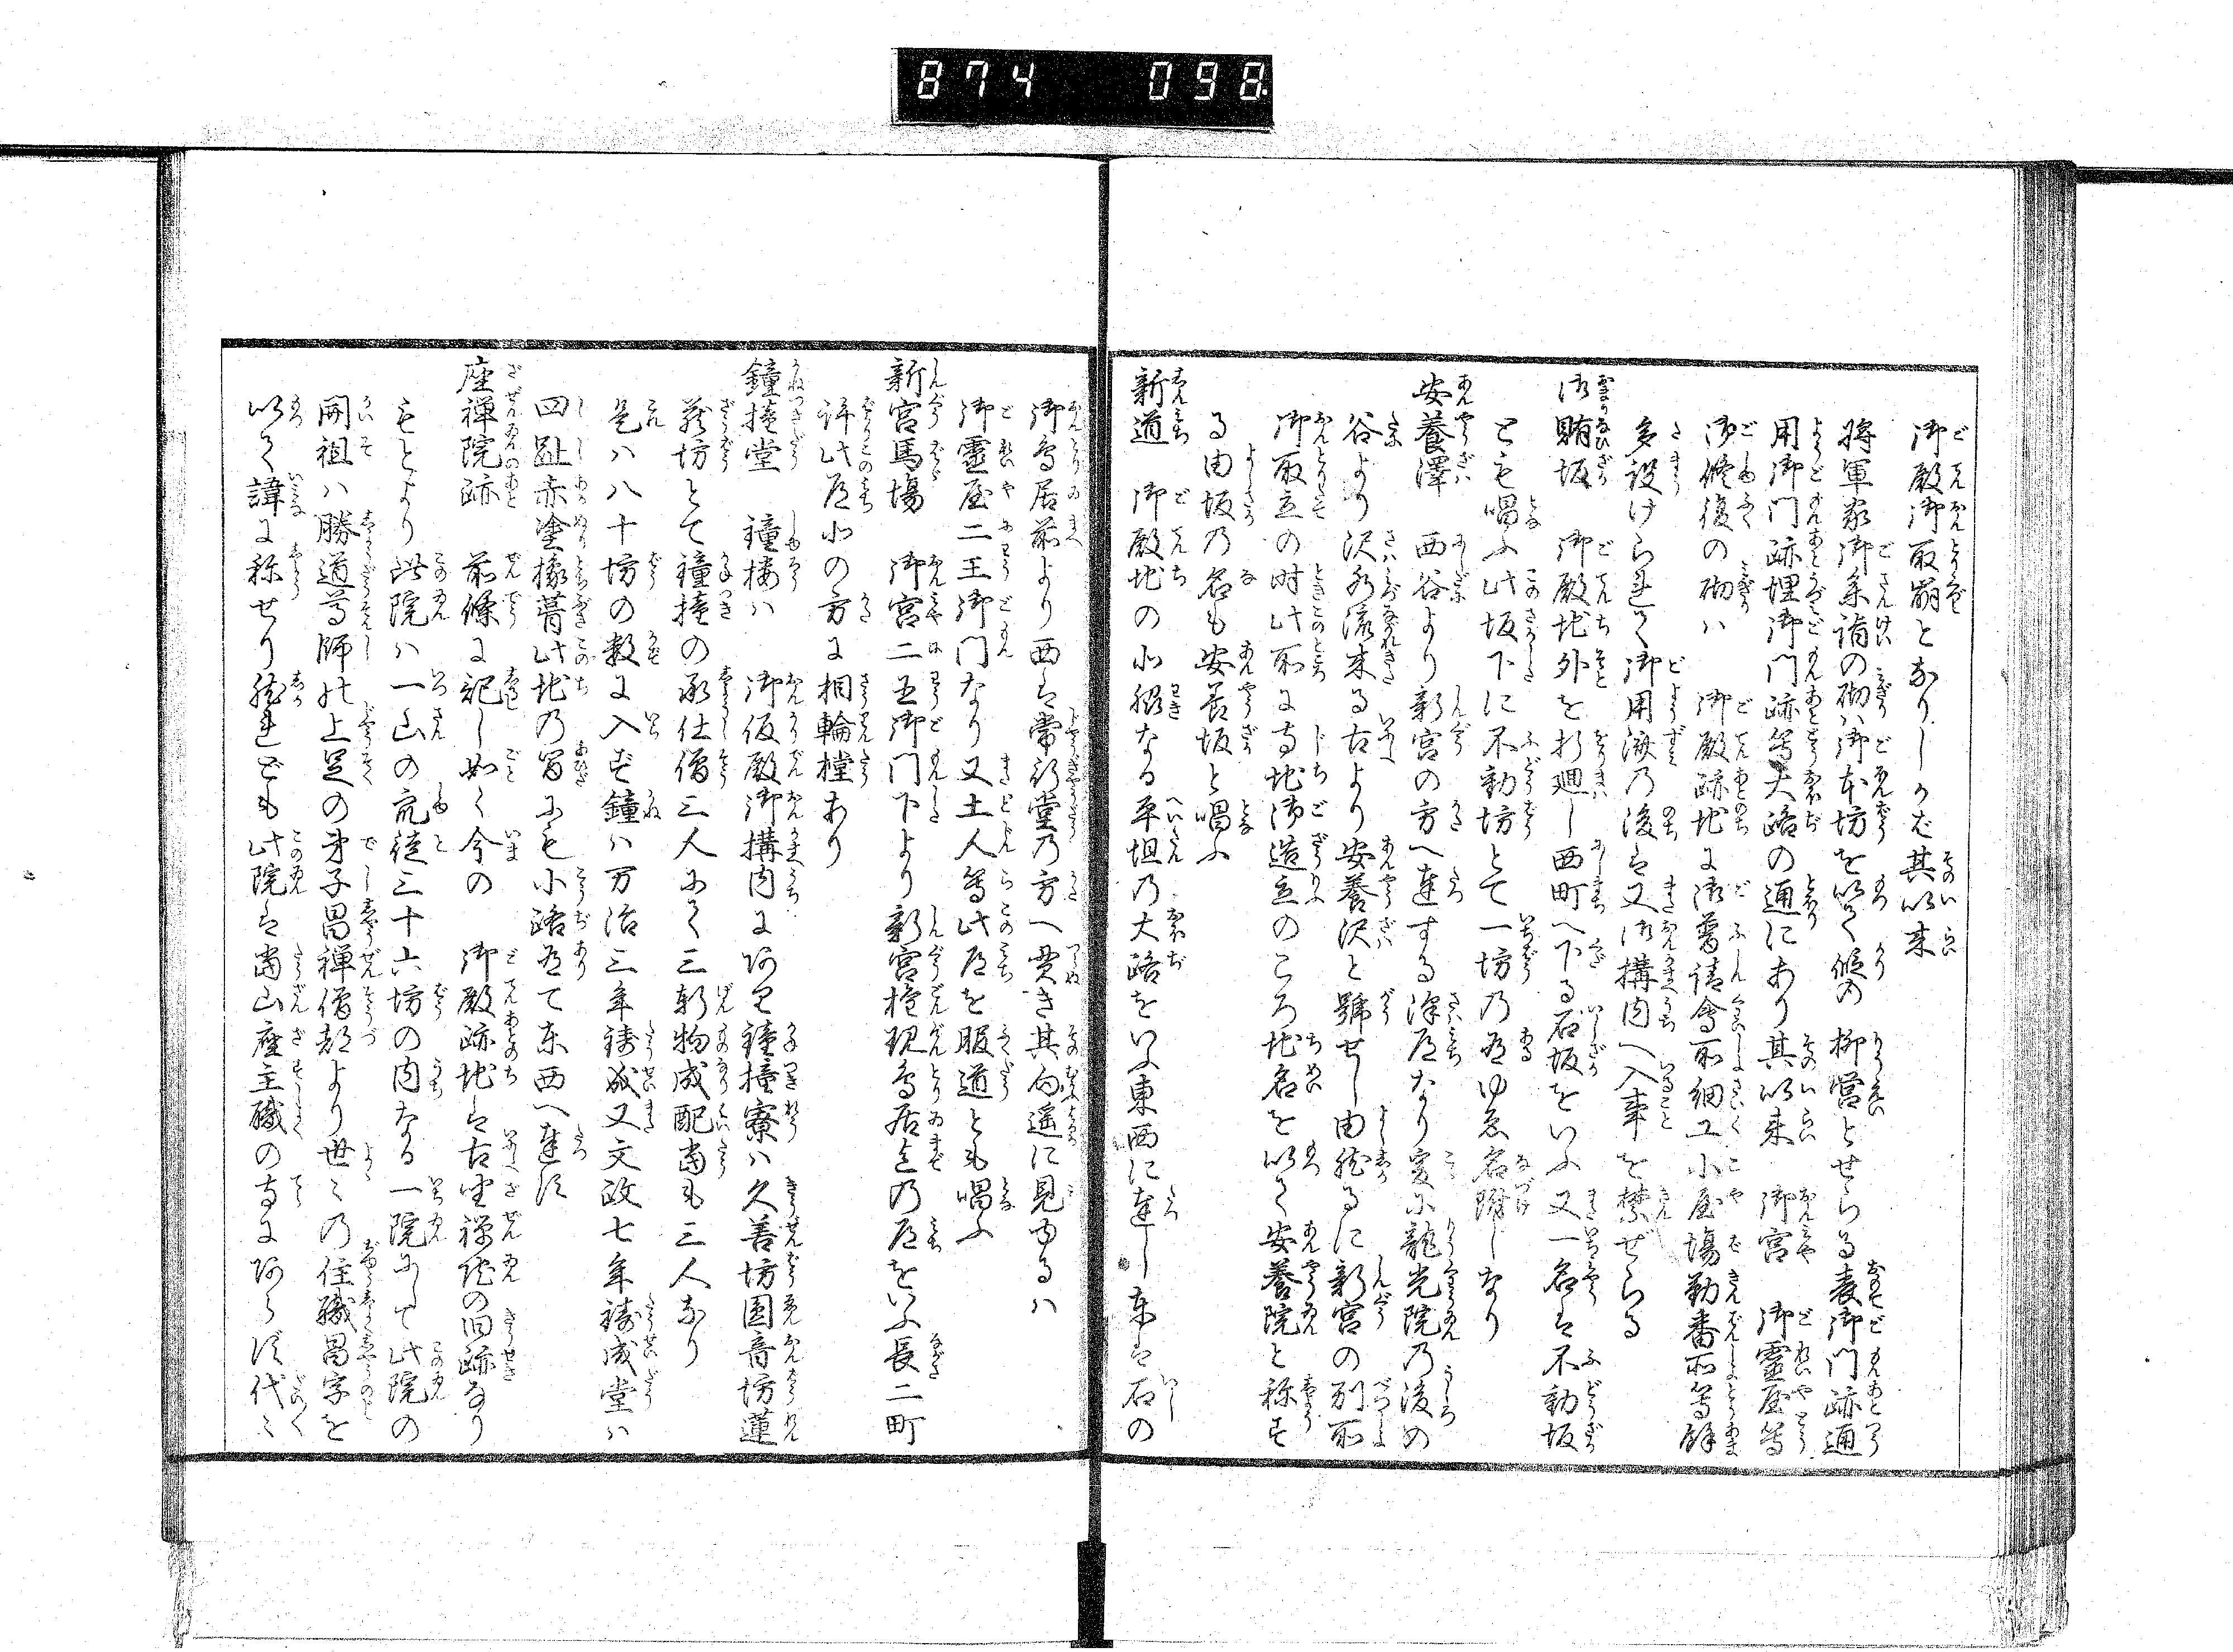 874 098
御殿御取崩となりしかば其以来
将軍家御参詣の砌ハ御本坊を以て假の 柳營とせらる表御門跡通
用御門跡埋御門跡等大路の通にあり其以来 御宮 御靈屋等
御修復の砌ハ 御殿跡地に御普請會所細工小屋場勤番所等
多設けられて御用濟の後は又御構内へ入事を禁ぜらる
御賄坂 御殿地外を打廻し西町へ下る石坂をいふ又一名は不動坂
とも唱ふ此坂下に不動坊とて一坊の有ゆゑ名附しなり
安養澤 西谷より新宮の方へ達する澤道なり爰に龍光院の後の
谷より沢水流来る古より安養沢と號せし由然るに新宮の別所
御取立の時此所に寺地御造立のころ地名を以て安養院と称す
る由坂の名も安養坂と唱ふ
新道 御殿地の北脇なる平坦の大路をいふ東西に達し東は石の
御鳥居前より西は常行堂の方へ貫き其向遥に見ゆるハ
御靈屋二王御門なり又土人等此道を服道とも唱ふ
新宮馬場 御宮二王御門下より新宮権現鳥居迄の道をいふ長二町
許此道北の方に相輪橖あり
鐘撞堂 鐘楼ハ 御仮殿御構内にあり鐘撞寮ハ久善坊圓音坊蓮
蔵坊とて鐘撞の承仕僧三人にて三軒物成配當も三人なり
是ハ八十坊の数に入ず鐘ハ万治三年鋳成又文政七年鋳成堂ハ
四趾赤塗椽葺此地の間にも小路有て東西へ達す
座禅院跡 前條に記し如く今の 御殿跡地は古坐禅院の旧跡なり
もとより此院ハ一山の衆徒三十六坊の内なる一院にして此院の
開祖ハ勝道尊師の上足の弟子昌禅僧都より世々の住職昌字を
以て諱に称せり然れども此院は當山座主職の寺にあらず代々